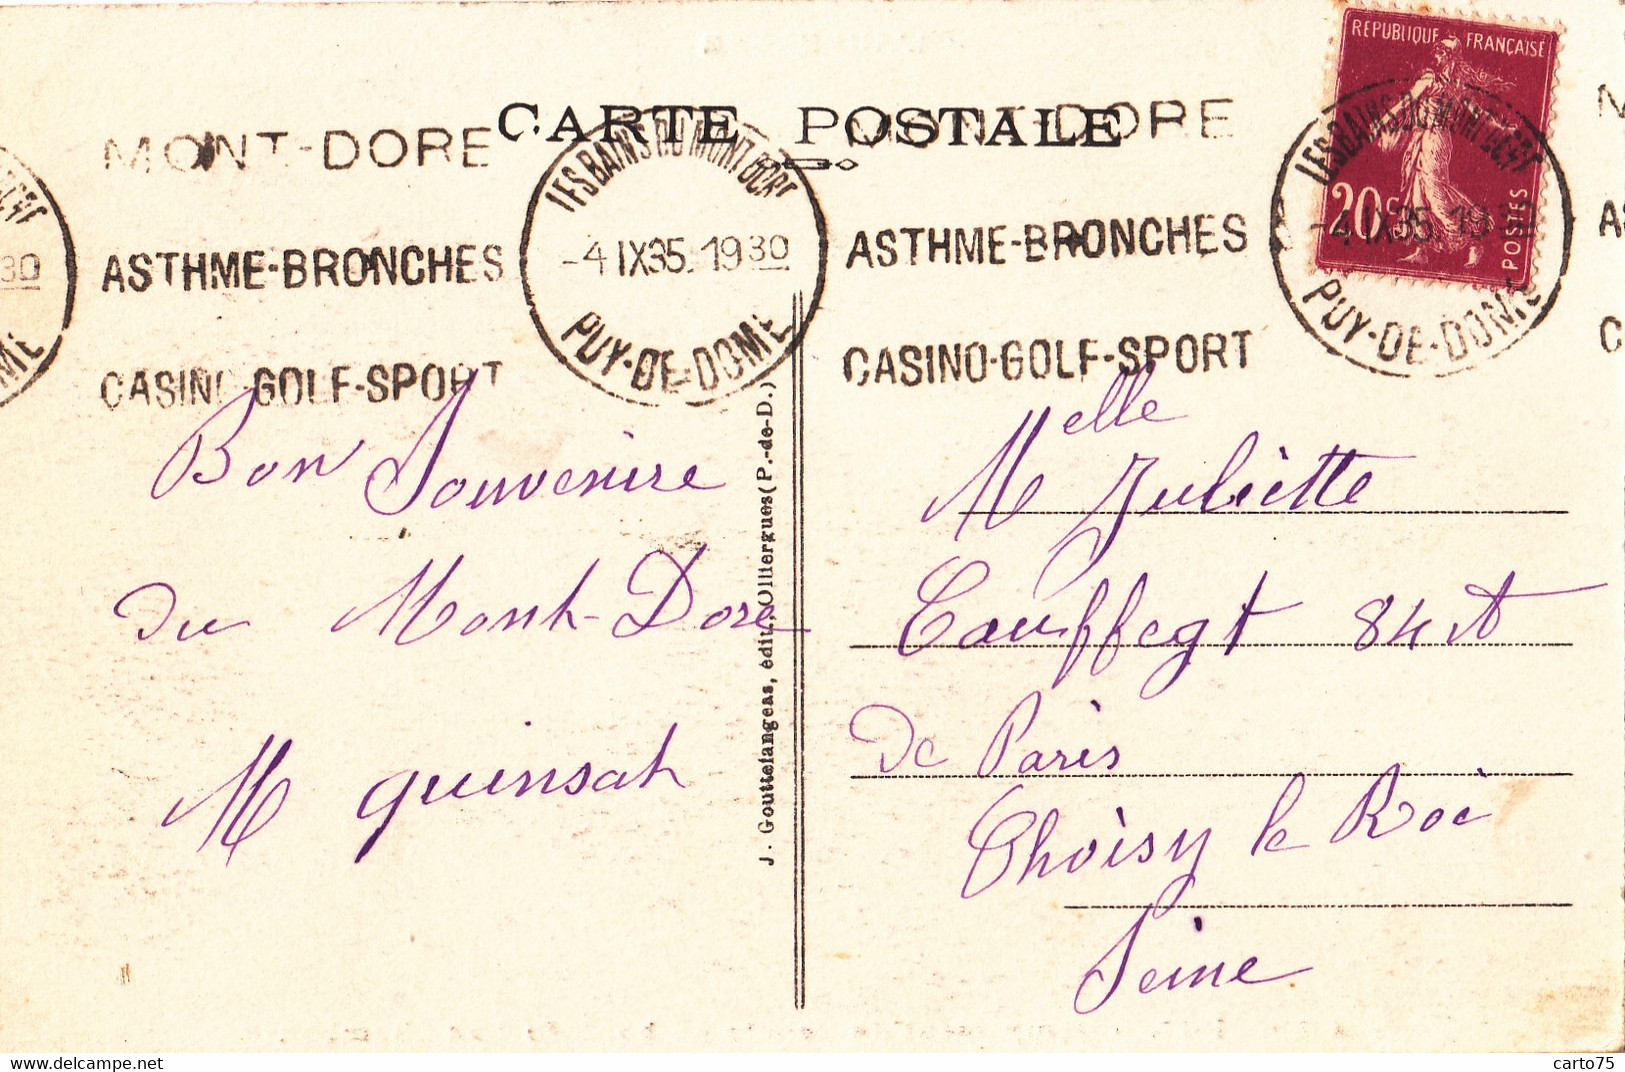 CARTE POSTALE
MONT-DORE
ASTHME-BRONCHES
CASINO-GOLF-SPORT
LES BAINS DU MONT DORE
-4 IX 35. 19 30
PUY-DE-DOME
MONT-DORE
ASTHME-BRONCHES
CASINO-GOLF-SPORT
REPUBLIQUE FRANÇAISE
20 c
POSTES
LES BAINS DU MONT DORE
-4 IX 35. 19 30
PUY-DE-DOME
30
Bon Souvenire
du Mont-Dore
M quinsat
J. Gouttelangeas, édit., Olliergues (P.-de-D.)
Melle Juliette
84
De Paris
Choisy le Roi
Seine
carto75